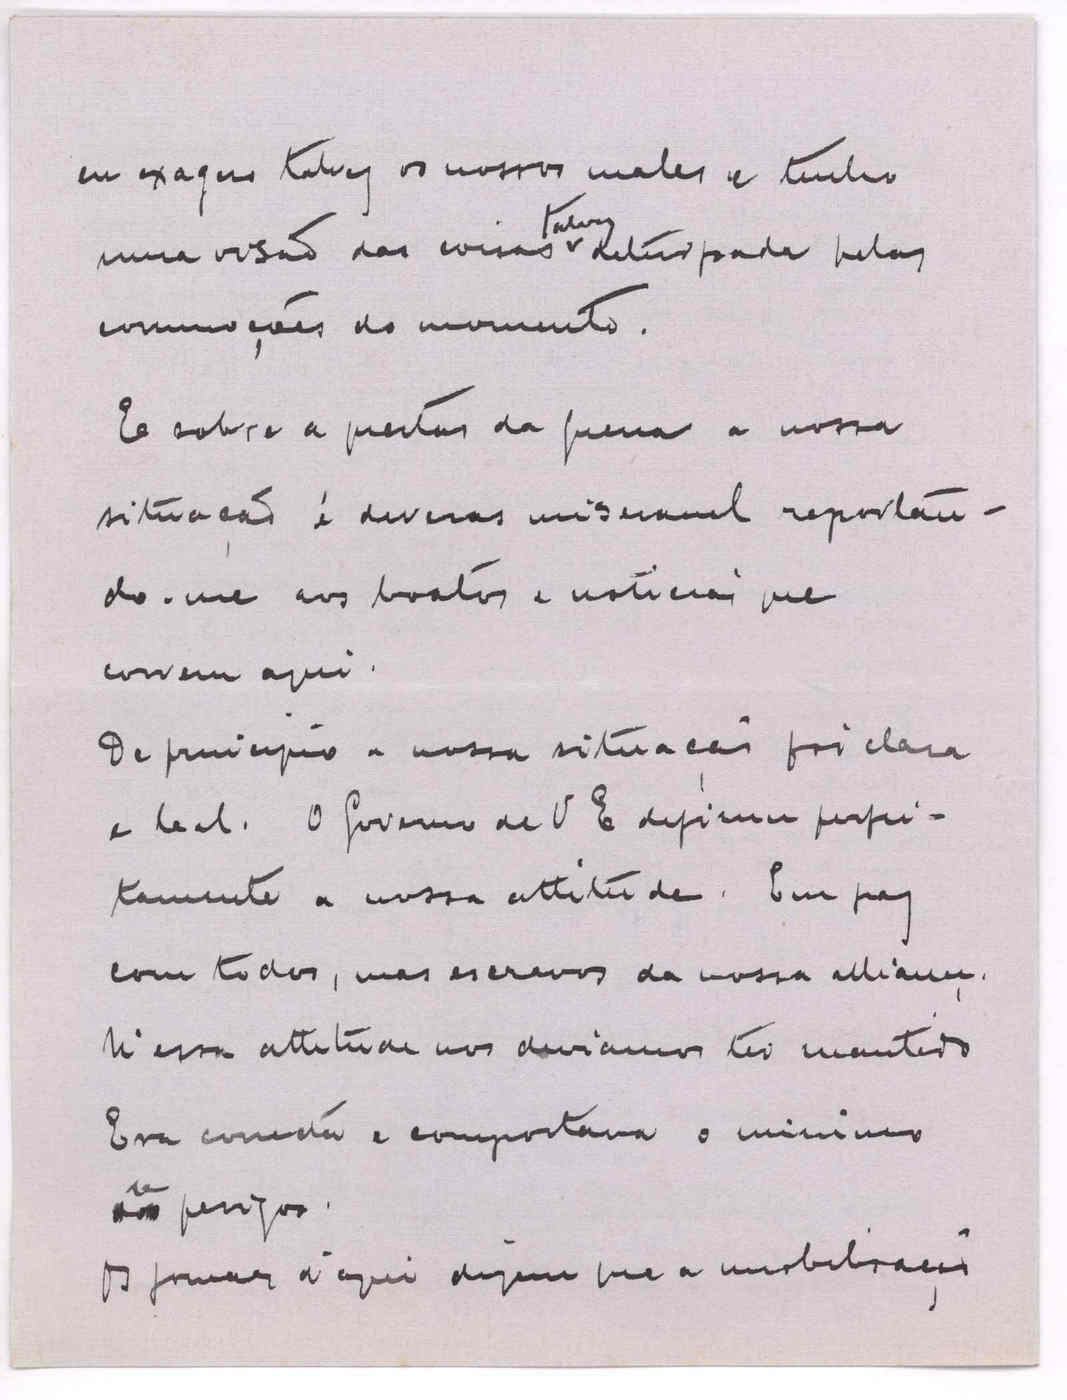 eu exagero talvez os nossos males e tenho
uma visão das coisas talvez deturpada pelas
commoções do momento.
E sobre a questão da guerra a nossa
situação é deveras miseravel reportan-
do-me aos boatos e noticias que
correm aqui.
De principio a nossa situação foi clara
e leal. O Governo de V E definiu perfei-
tamente a nossa attitude. Em paz
com todos, mas escravos da nossa alliança.
N'essa attitude nos deviamos ter mantido
Era correcta e comportava o minimo
de perigos.
Os jornaes d'aqui dizem que a mobilisação